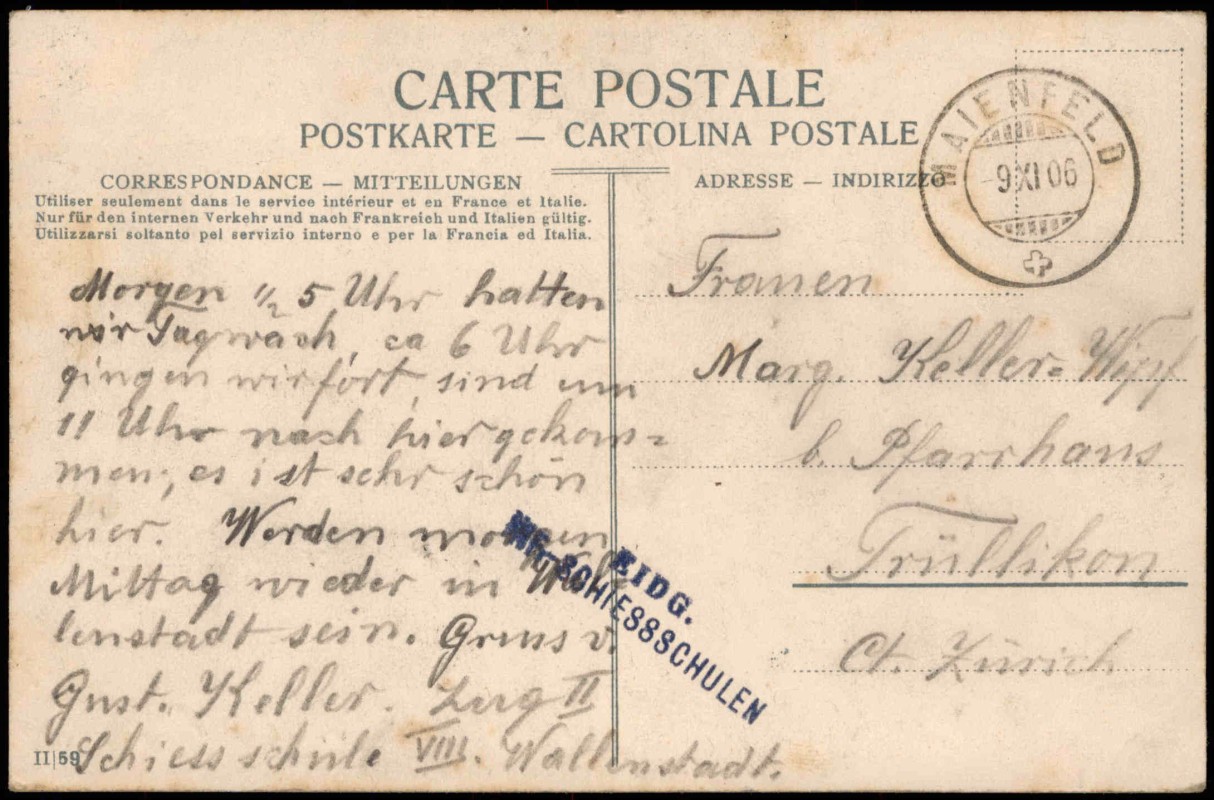 CARTE POSTALE
POSTKARTE — CARTOLINA POSTALE
CORRESPONDANCE — MITTEILUNGEN
Utiliser seulement dans le service intérieur et en France et Italie.
Nur für den internen Verkehr und nach Frankreich und Italien gültig.
Utilizzarsi soltanto pel servizio interno e per la Francia ed Italia.
ADRESSE — INDIRIZZO
MAIENFELD
-9 XI 06
Morgen 1/2 5 Uhr hatten
wir Tagwach, ca 6 Uhr
gingen wir fort, sind um
11 Uhr nach hier gekom=
men, es ist sehr schön
hier. Werden morgen
Mittag wieder in Wal
lenstadt sein. Gruss v.
Gust. Keller. Zug II
Schiessschule VIII. Wallenstadt.
II|59
EIDG.
SCHIESSSCHULEN
Frauen
Marg. Keller=
b. Pfarrhaus
Trüllikon
Ct. Zürich